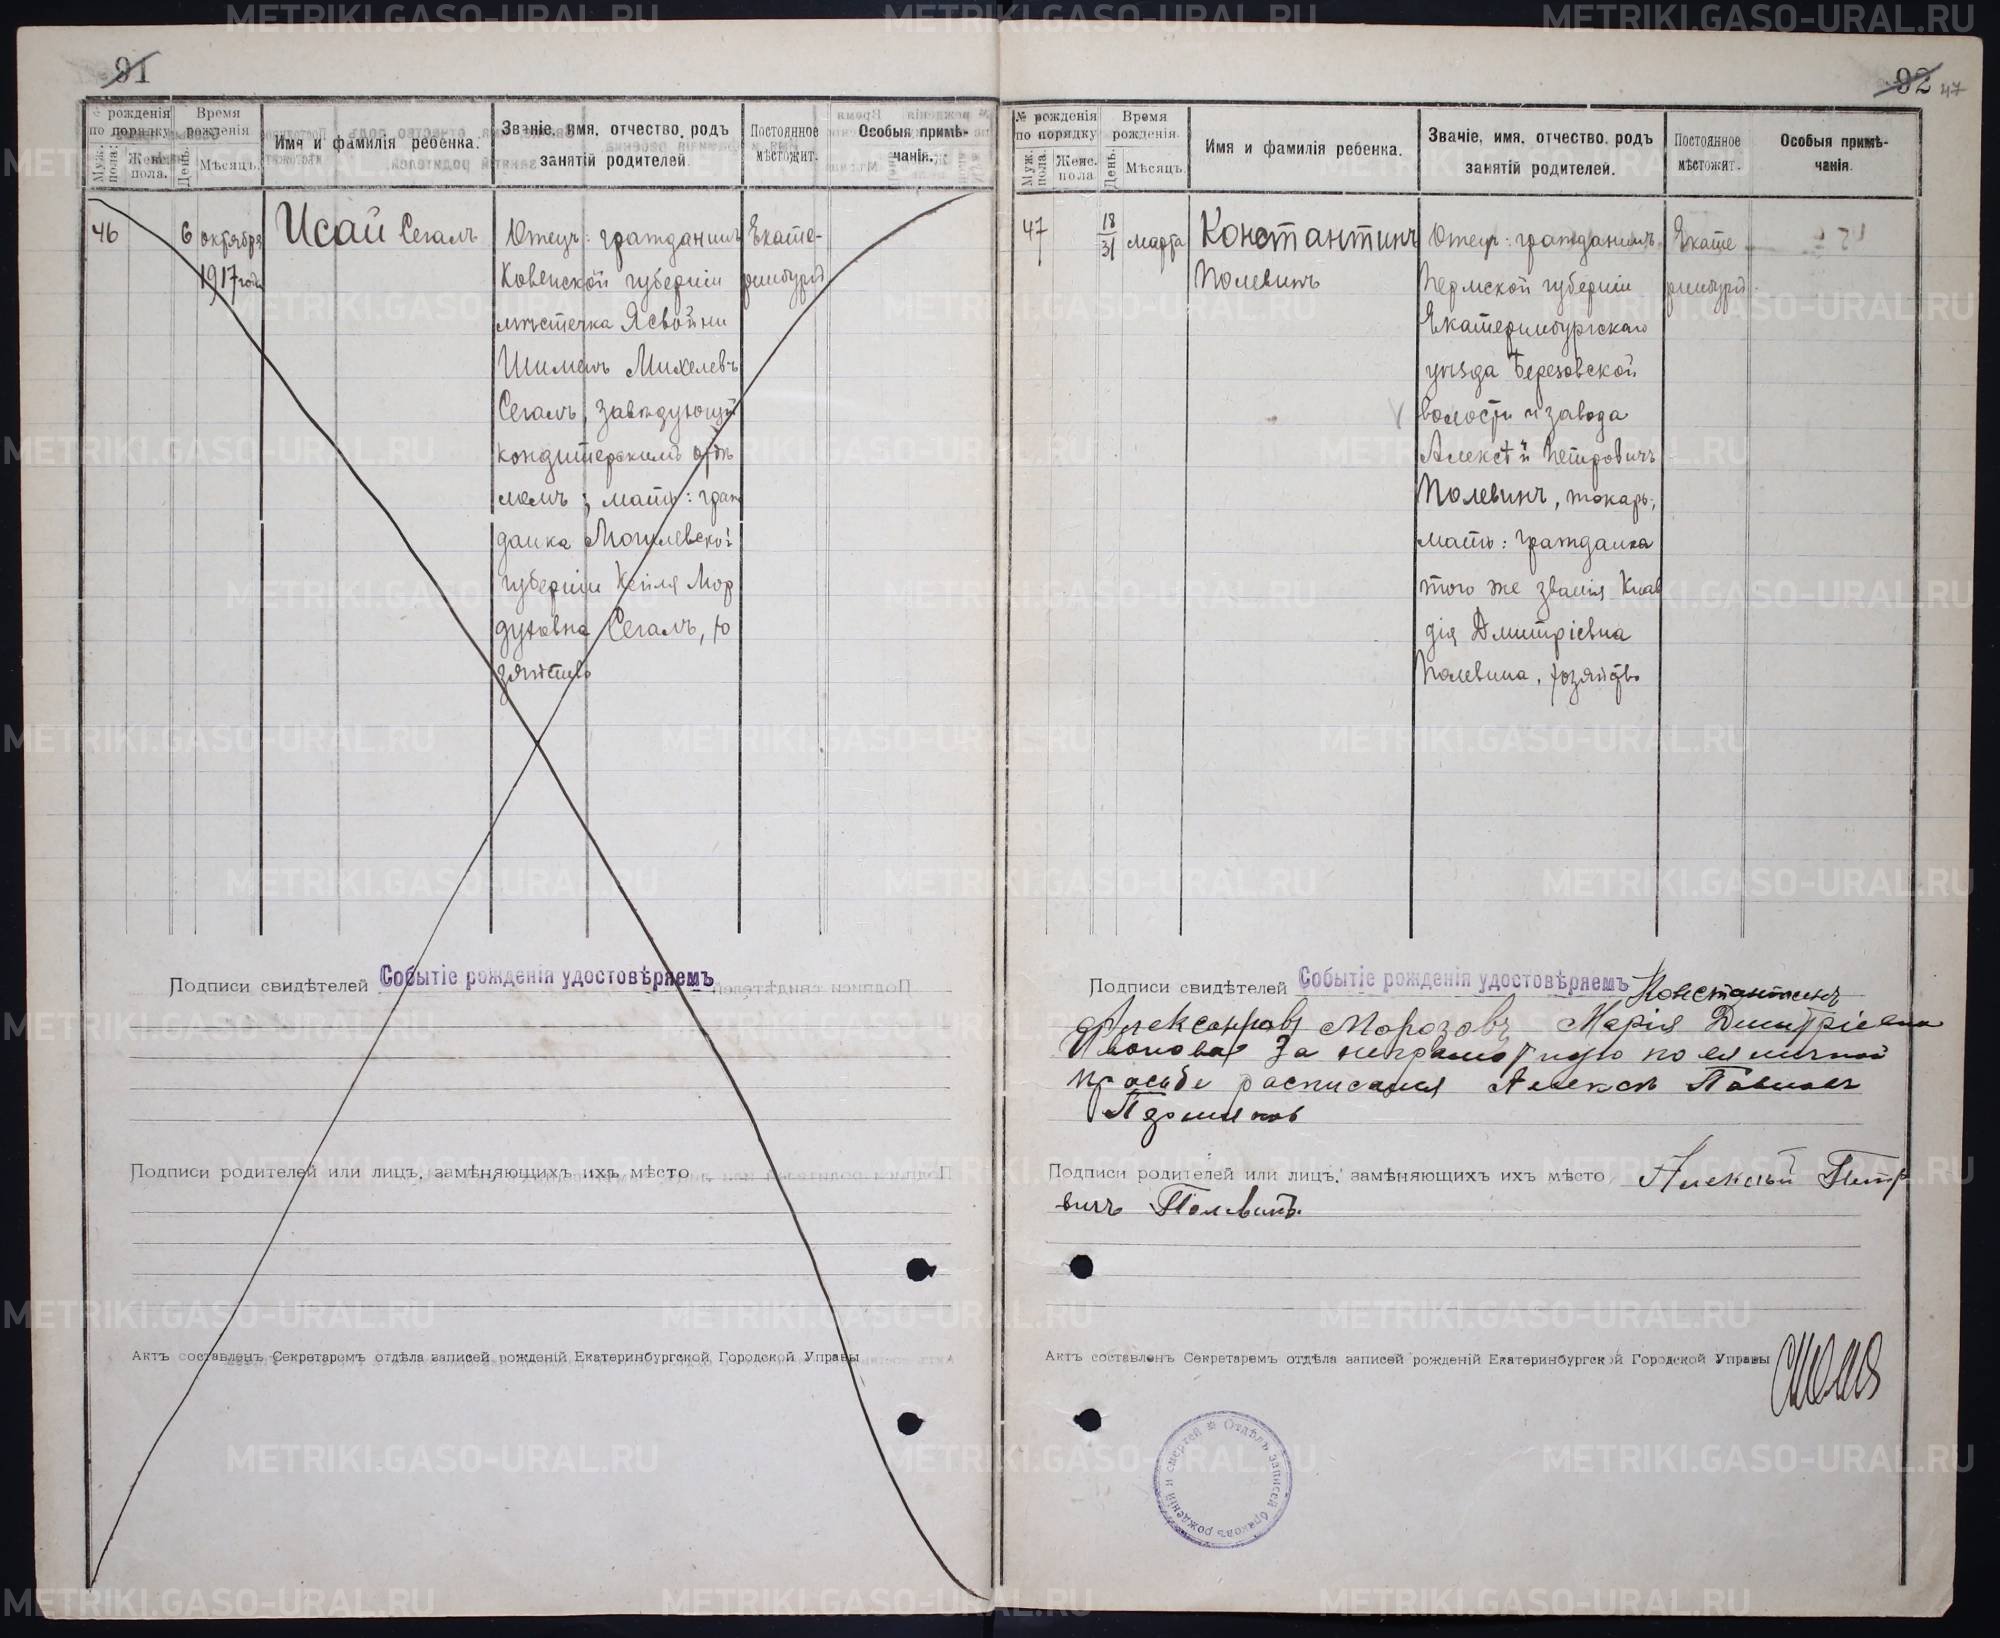 91
№ рожденія по порядку
Муж. пола.
Женс. пола.
Время рожденія
День.
Мѣсяцъ.
Имя и фамилія ребенка.
Званіе, имя, отчество, родъ занятій родителей.
Постоянное мѣстожит.
Особыя примѣчанія.
46
6 октября
1917 года
Исай Сегалъ
Отецъ: гражданинъ
Ковенской губерніи
мѣстечка Ясвойни
Шимелъ Михелевъ
Сегалъ, завѣдующій
кондитерскимъ отдѣ
ломъ; мать: граж
данка Могилевской
губерніи Хейля Мор
духовна Сегалъ, хо
зяйство
Екате-
ринбургъ
Подписи свидѣтелей Событіе рожденія удостовѣряемъ
Подписи родителей или лицъ, замѣняющихъ ихъ мѣсто
Актъ составленъ Секретаремъ отдѣла записей рожденій Екатеринбургской Городской Управы
92 47
№ рожденія по порядку
Муж. пола.
Женс. пола
Время рожденія.
День.
Мѣсяцъ.
Имя и фамилія ребенка.
Званіе, имя, отчество, родъ занятій родителей.
Постоянное мѣстожит.
Особыя примѣчанія.
47
18/31 марта
Константинъ
Полевинъ
Отецъ: гражданинъ
Пермской губерніи
Екатеринбургскаго
уѣзда Березовской
волости и завода
Алексѣй Петровичъ
Полевинъ, токарь;
мать: гражданка
того же званія Клав
дія Дмитріевна
Полевина, хозяйство
Екате
ринбургъ
Подписи свидѣтелей Событіе рожденія удостовѣряемъ Константинъ
Александровъ Морозовъ Марія Дмитріевна
За неграмотную по ея личной
просьбе расписался Алексѣ Павловъ
Подписи родителей или лицъ, замѣняющихъ ихъ мѣсто Алексѣй Петр
вичъ Полевинъ.
Актъ составленъ Секретаремъ отдѣла записей рожденій Екатеринбургской Городской Управы
Отдѣлъ записей браковъ рожденій и смертей
METRIKI.GASO-URAL.RU